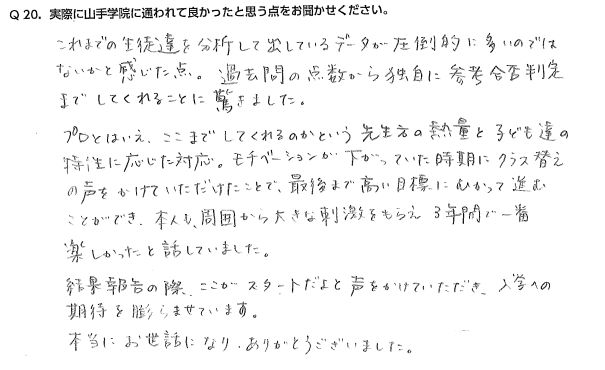 Q 20. 実際に山手学院に通われて良かったと思う点をお聞かせください。
これまでの生徒達を分析して出しているデータが圧倒的に多いのでは
ないかと感じた点。過去問の点数から独自に参考合否判定
までしてくれることに驚きました。
プロとはいえ、ここまでしてくれるのかという先生方の熱量と子ども達の
特性に応じた対応。モチベーションが下がっていた時期にクラス替え
の声をかけていただけたことで、最後まで高い目標にむかって進む
ことができ、本人も、周囲から大きな刺激をもらえ3年間で一番
楽しかったと話していました。
結果報告の際、ここがスタートだよと声をかけていただき、入学への
期待を膨らませています。
本当にお世話になり、ありがとうございました。